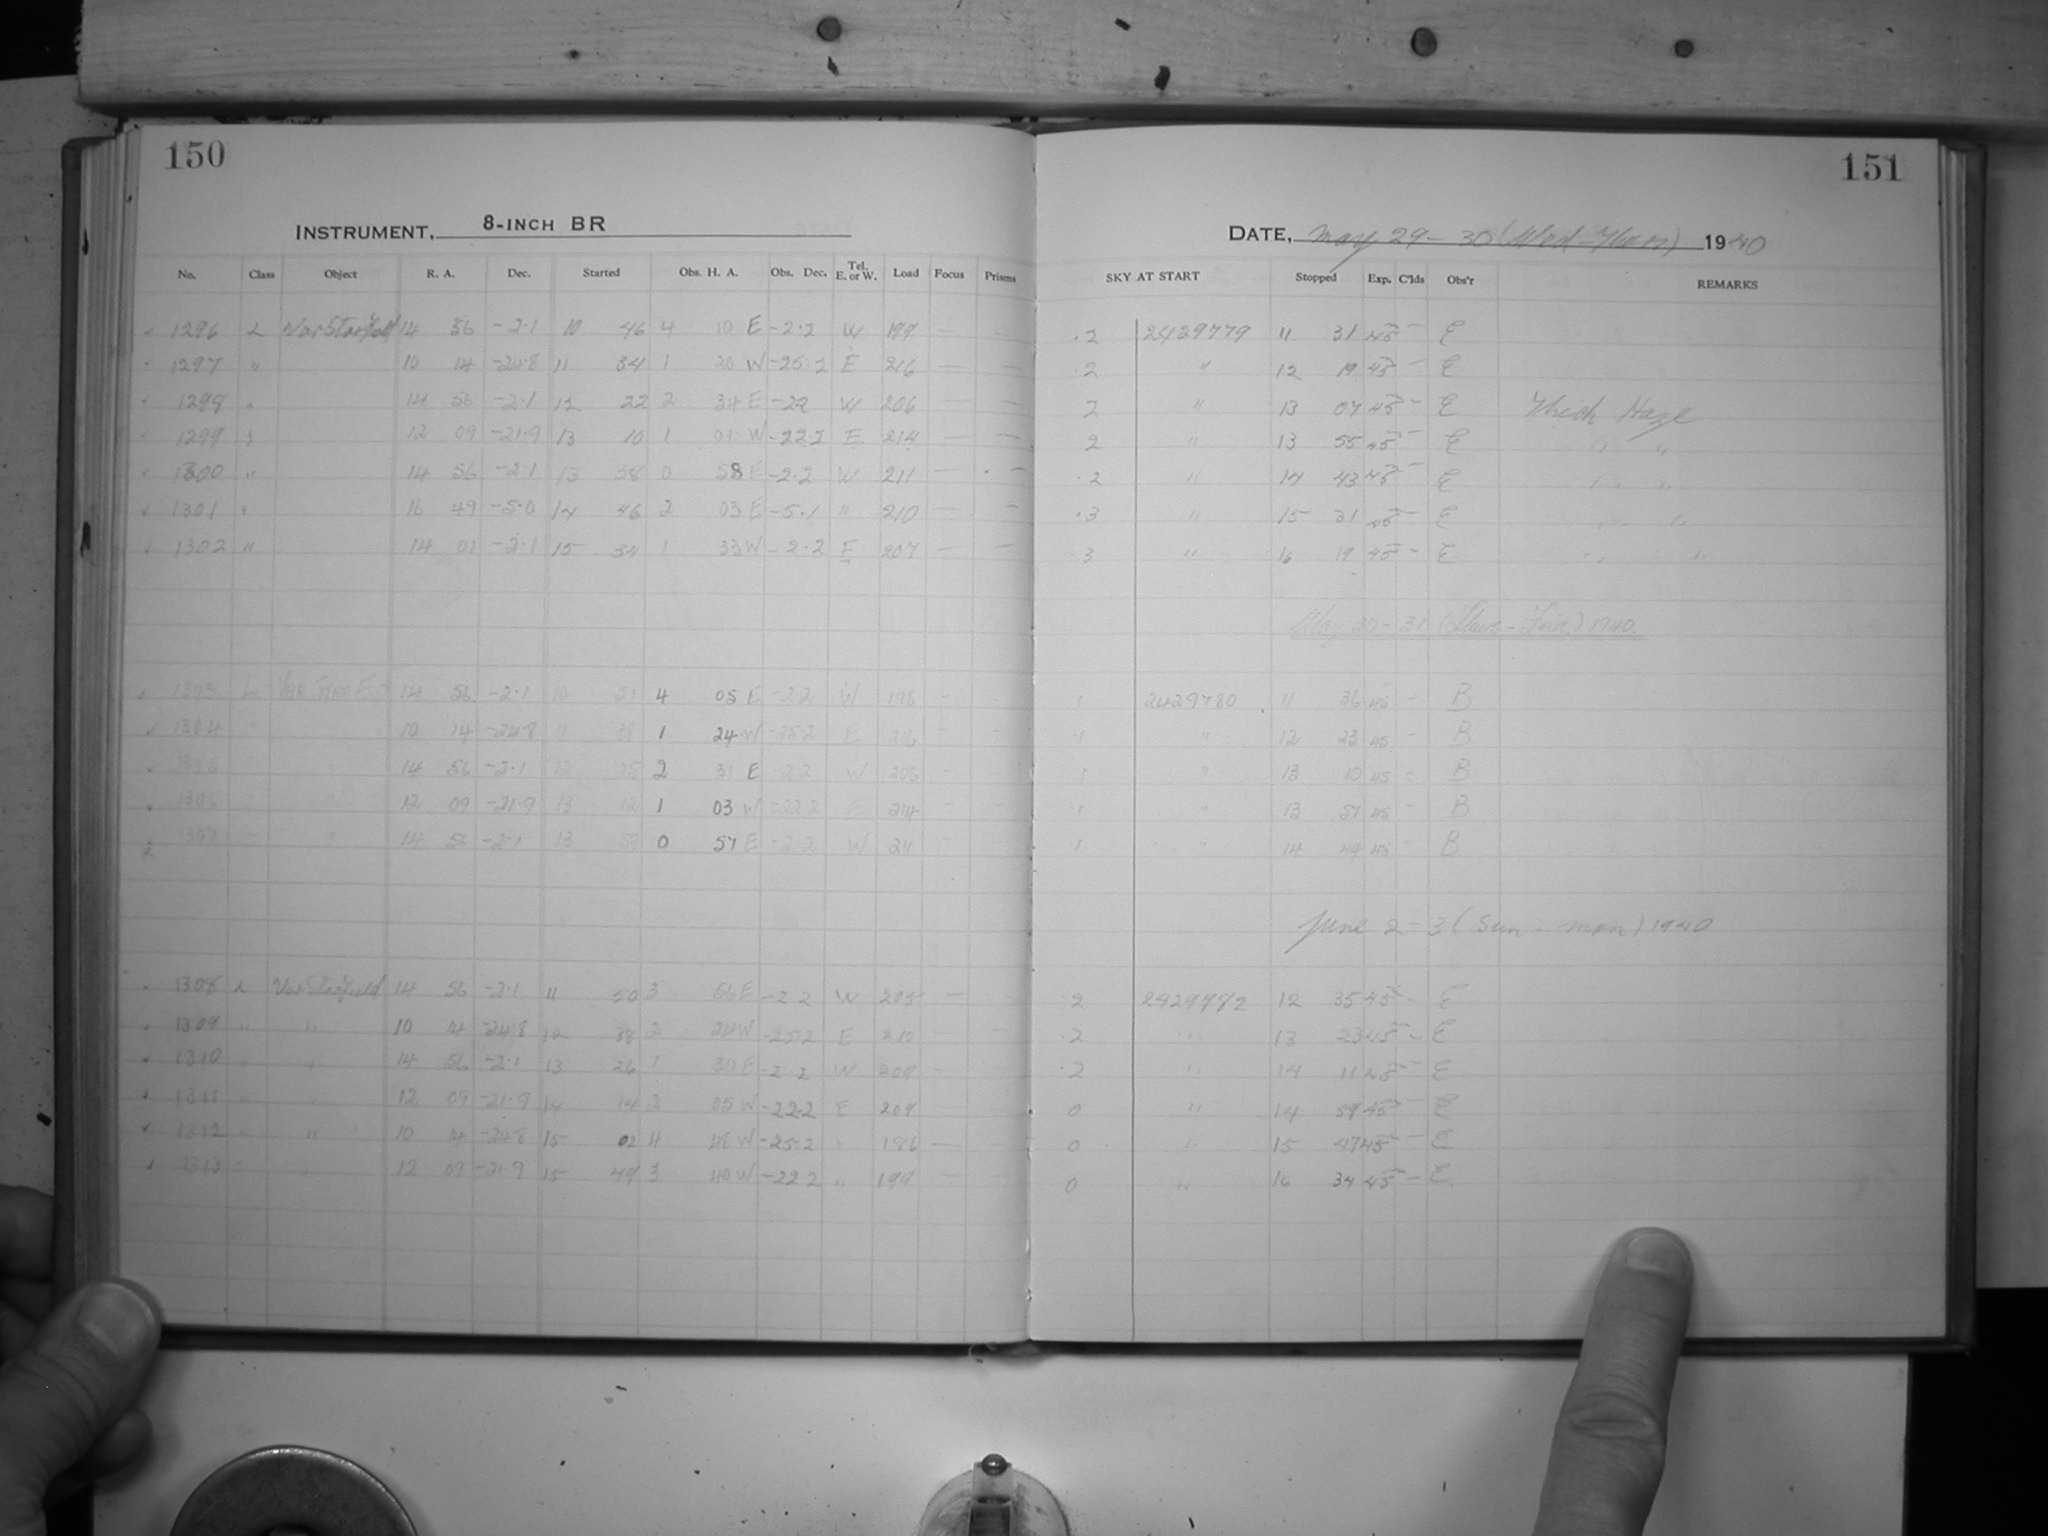 150
INSTRUMENT, 8-INCH BR
No. Class Object R. A. Dec. Started Obs. H. A. Obs. Dec. Tel. E. or W. Load Focus Prisms
1296 L Var Star Field 14 56 -2.1 10 46 4 10 E -2.2 W 199 — —
1297 " 10 14 -24.8 11 34 1 20 W -25.2 E 216 — —
1298 " 14 56 -2.1 12 22 2 34 E -22 W 206 — —
1299 " 12 09 -21.9 13 10 1 01 W -22.2 E 214 — —
1300 " 14 56 -2.1 13 58 0 58 E -2.2 W 211 — —
1301 " 16 49 -5.0 14 46 2 03 E -5.1 " 210 — —
1302 " 14 01 -2.1 15 34 1 33 W -2.2 E 207 — —
1303 L VAR STAR FLD 14 56 -2.1 10 51 4 05 E -2.2 W 198 - -
1304 " 10 14 -24.8 11 38 1 24 W -25.2 E 216 - -
1305 " 14 56 -2.1 12 25 2 31 E -2.2 W 206 - -
1306 " " 12 09 -21.9 13 12 1 03 W -22.2 E 214 - -
1307 " " 14 56 -2.1 13 59 0 57 E -2.2 W 211 - -
1308 L Var Star field 14 56 -2.1 11 50 3 56 E -2.2 W 205 —
1309 " " 10 14 -24.8 12 38 2 24 W -25.2 E 210 —
1310 " " 14 56 -2.1 13 26 1 30 E -2.2 W 209 —
1311 " " 12 09 -21.9 14 14 2 05 W -22.2 E 209 —
1312 " " 10 14 -24.8 15 02 4 48 W -25.2 " 186 — —
1313 " " 12 09 -21.9 15 49 3 40 W -22.2 " 199 — —
151
DATE, May 29-30 (Wed-Thurs) 1940
SKY AT START Stopped Exp. C'lds Obs'r REMARKS
.2 2429779 11 31 45 — E
.2 " 12 19 45 — E
2 " 13 07 45 — E Thick Haze
2 " 13 55 45 — E " "
.2 " 14 43 45 — E " "
.3 " 15 31 45 — E " "
.3 " 16 19 45 — E " "
May 30-31 (Thurs-Fri) 1940.
1 2429780 11 36 45 - B
.1 " 12 23 45 - B
1 " 13 10 45 - B
.1 " 13 57 45 - B
1 " 14 44 45 - B
June 2-3 (Sun-Mon) 1940
2 2429782 12 35 45 - E
.2 " 13 23 45 - E
.2 " 14 11 45 - E
0 " 14 59 45 - E
0 " 15 47 45 - E
0 " 16 34 45 — E